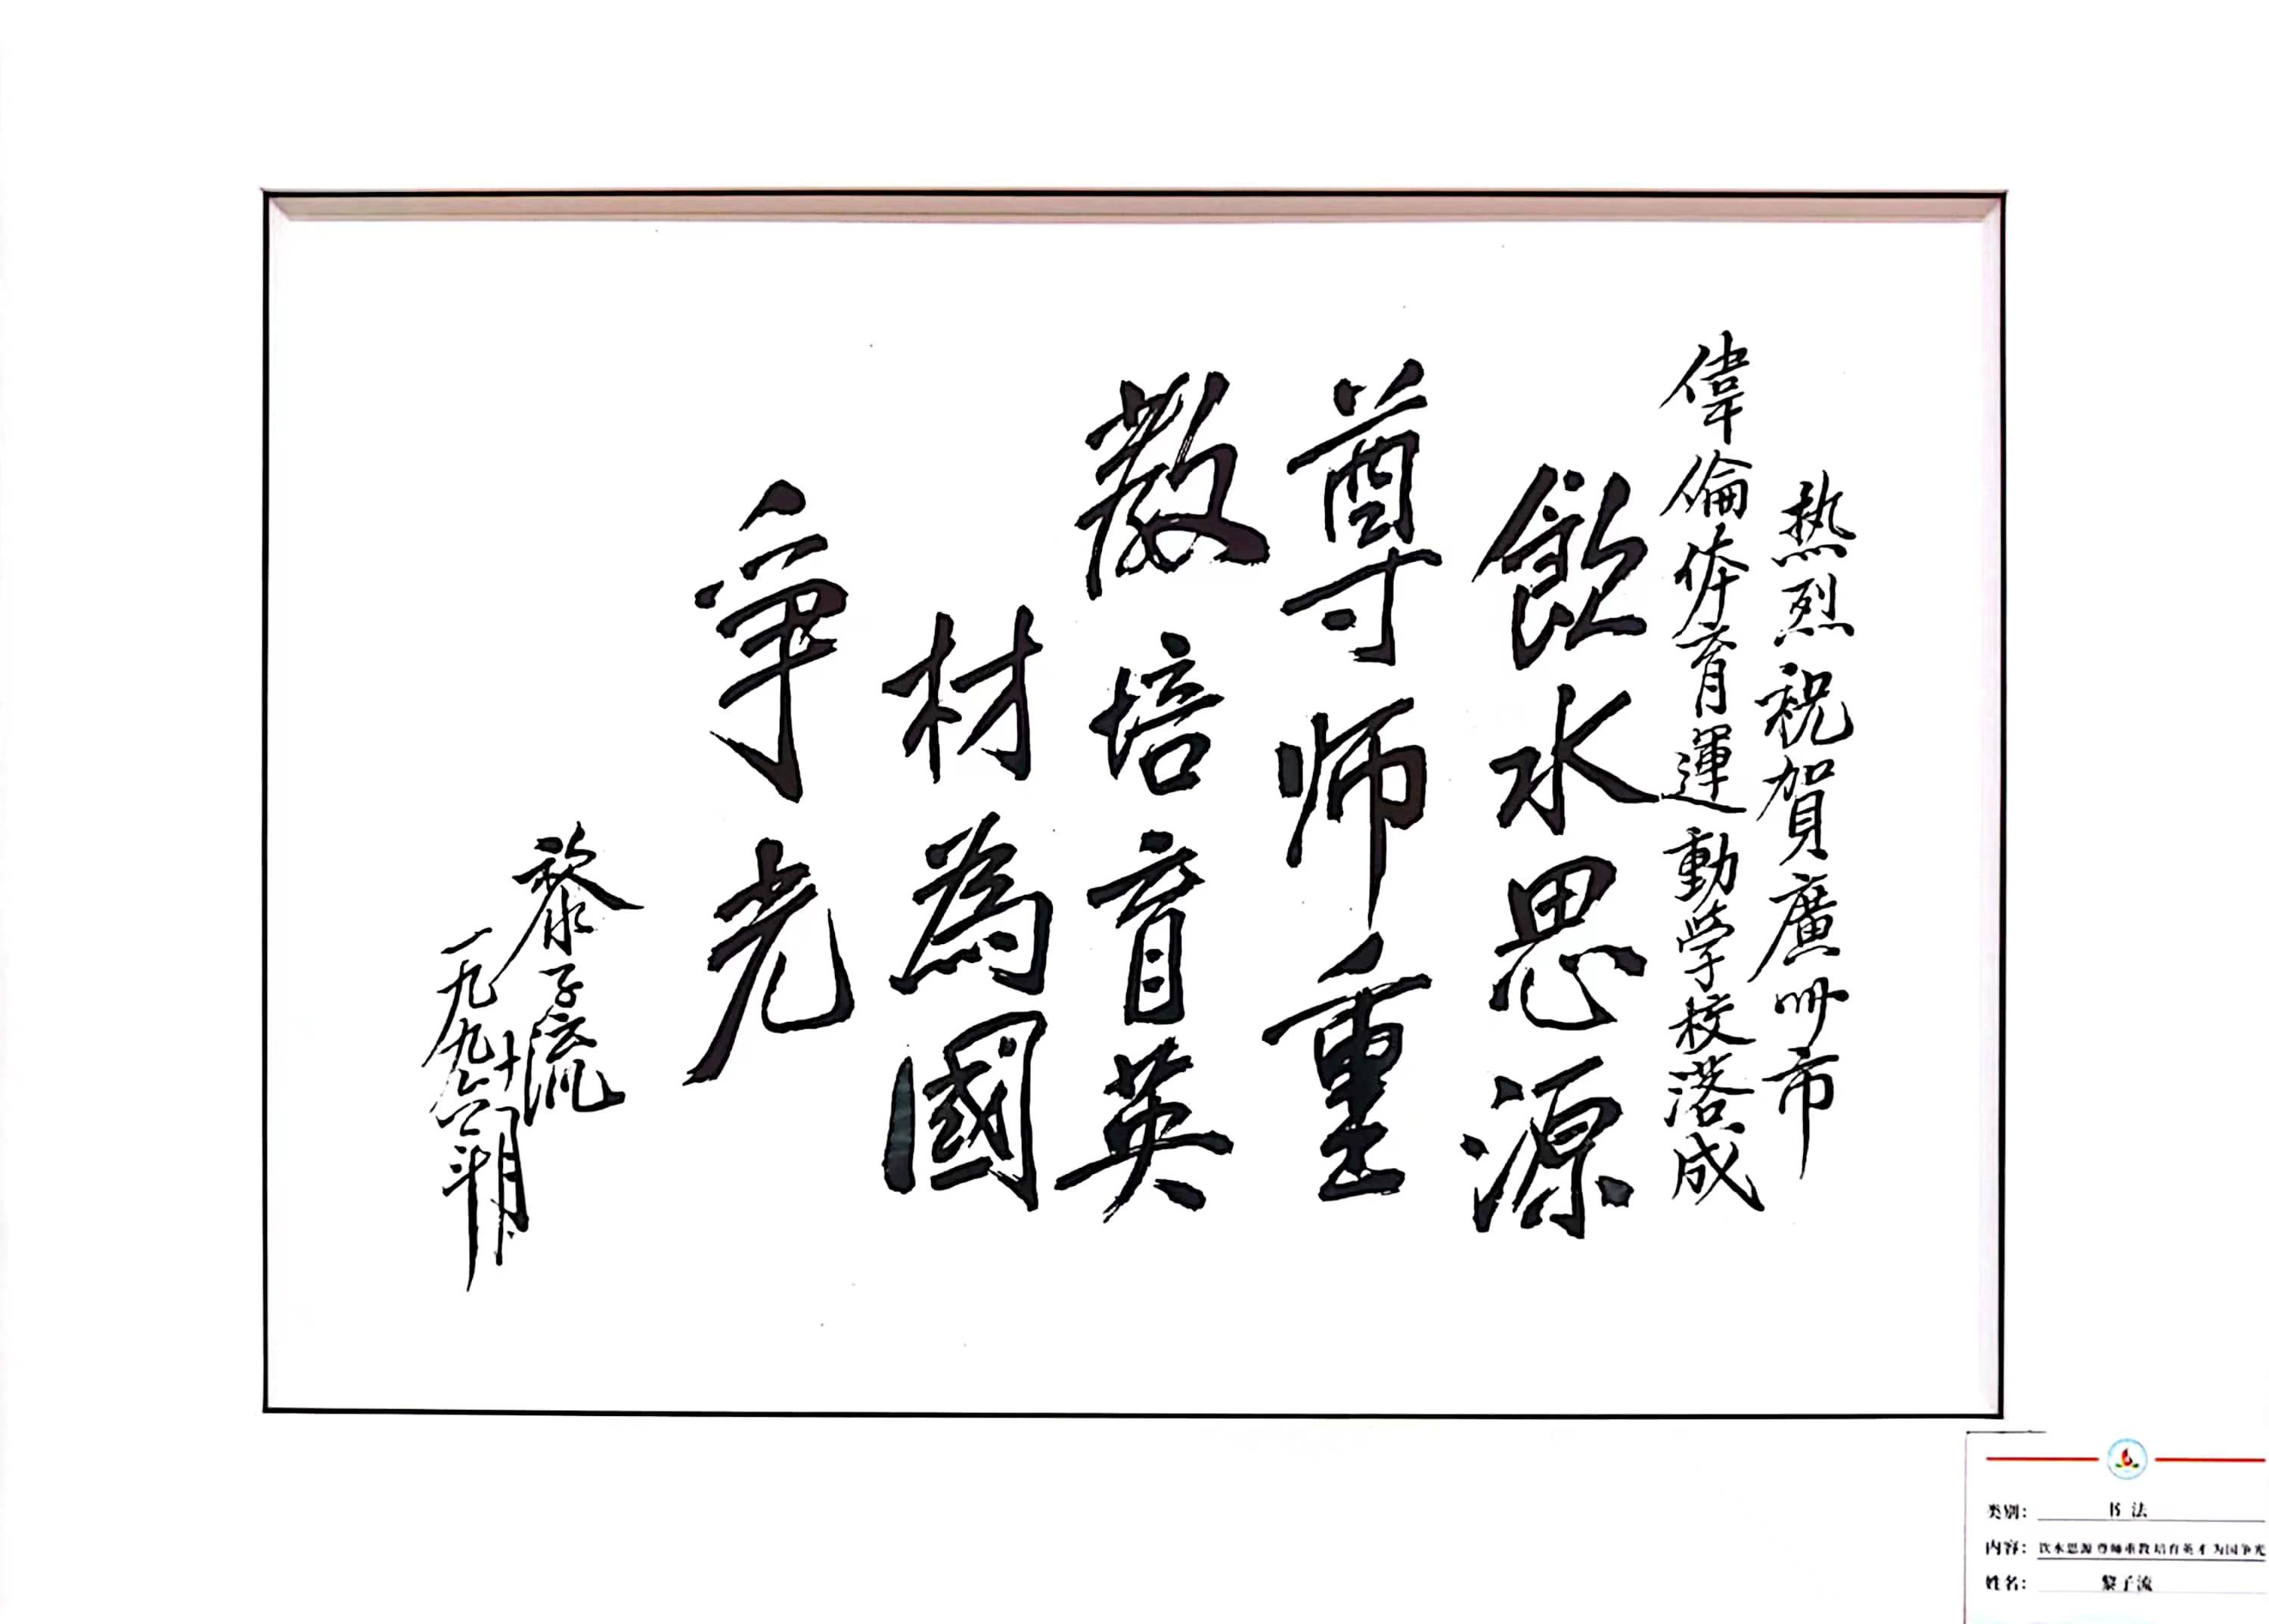 热烈祝賀廣州市
偉倫体育運動学校落成
飲水思源
尊师重
教培育英
材為國
争光
黎子流
一九九六年
十月
类别: 书法
内容: 饮水思源尊师重教培育英才为国争光
姓名: 黎子流